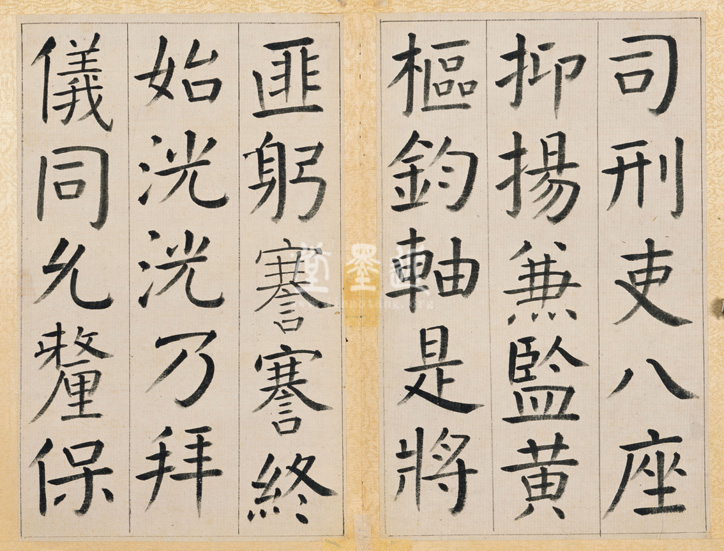 司刑吏八座
抑揚兼監黃
樞鈞軸是將
匪躬謇謇終
始洸洸乃拜
儀同允釐保